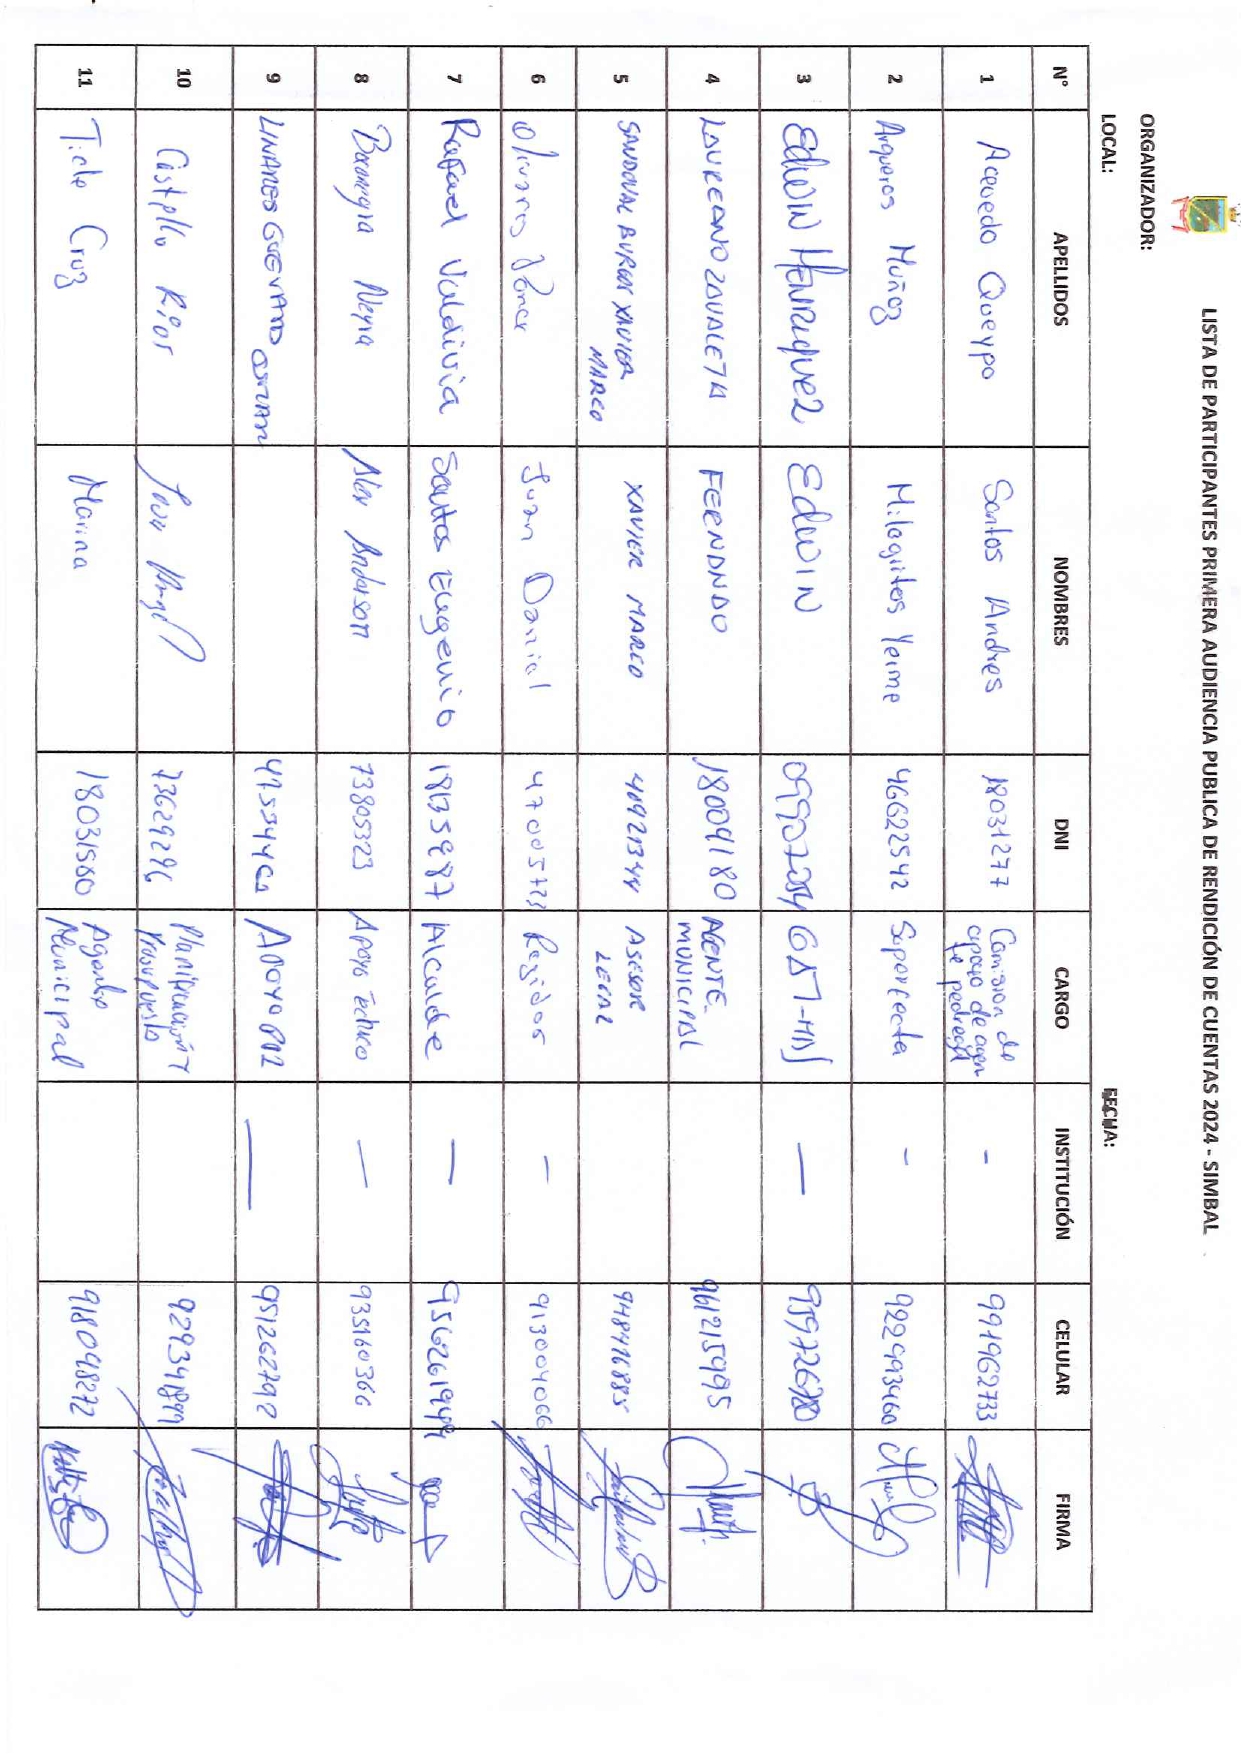 LISTA DE PARTICIPANTES PRIMERA AUDIENCIA PUBLICA DE RENDICIÓN DE CUENTAS 2024 - SIMBAL
ORGANIZADOR:
LOCAL: FECHA:
N° APELLIDOS NOMBRES DNI CARGO INSTITUCIÓN CELULAR FIRMA
1 Acevedo Queypo Santos Andres 18031277 Comision de apoyo de agen te pedregal - 991962733
2 Arqueros Muñoz Milagritos Yeime 46622542 Superfecta - 922993460
3 Edwin Henriquez Edwin 09907254 — 959726780
4 LAUREANO ZAVALETA FERNANDO 18009180 AGENTE MUNICIPAL 961215995
5 SANDOVAL BURGOS XAVIER MARCO XAVIER MARCO 40921344 ASESOR LEGAL 948976885
6 Olivares Ponce Juan Danial Regidor - 913004066
7 Rafael Valdivia Santos Eugenio Alcalde — 956261949
8 Bocanegra Neyra Alex Anderson 73805323 Apoyo — 935160366
9 LINARES GUEVARA Apoyo — 951262792
10 Castillo Rios 73629296 Planificación Y Presupuesto
11 Ticle Cruz Marina 18031560 Agente Municipal 918098272